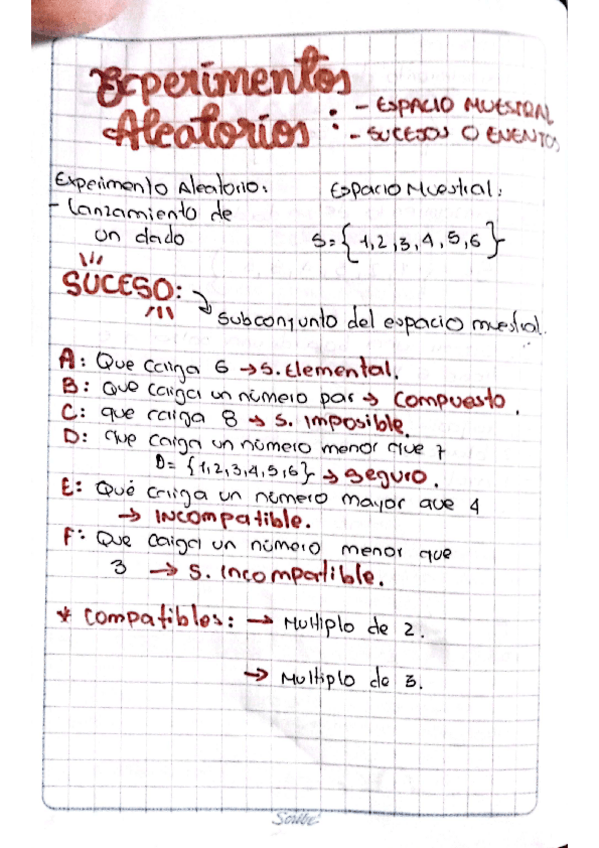 Experimentos
Aleatorios : - ESPACIO MUESTRAL
- SUCESOS O EVENTOS
Experimento Aleatorio:
- Lanzamiento de
un dado
Espacio Muestral:
S = {1,2,3,4,5,6}
SUCESO:
Subconjunto del espacio muestral.
A: Que caiga 6 → S. Elemental.
B: Que caiga un número par → Compuesto.
C: que caiga 8 → S. Imposible.
D: Que caiga un número menor que 7
D = {1,2,3,4,5,6} → Seguro.
E: Qué caiga un número mayor que 4
→ Incompatible.
F: Que caiga un número menor que
3 → S. Incompatible.
* Compatibles: → Multiplo de 2.
→ Multiplo de 3.
Scribe